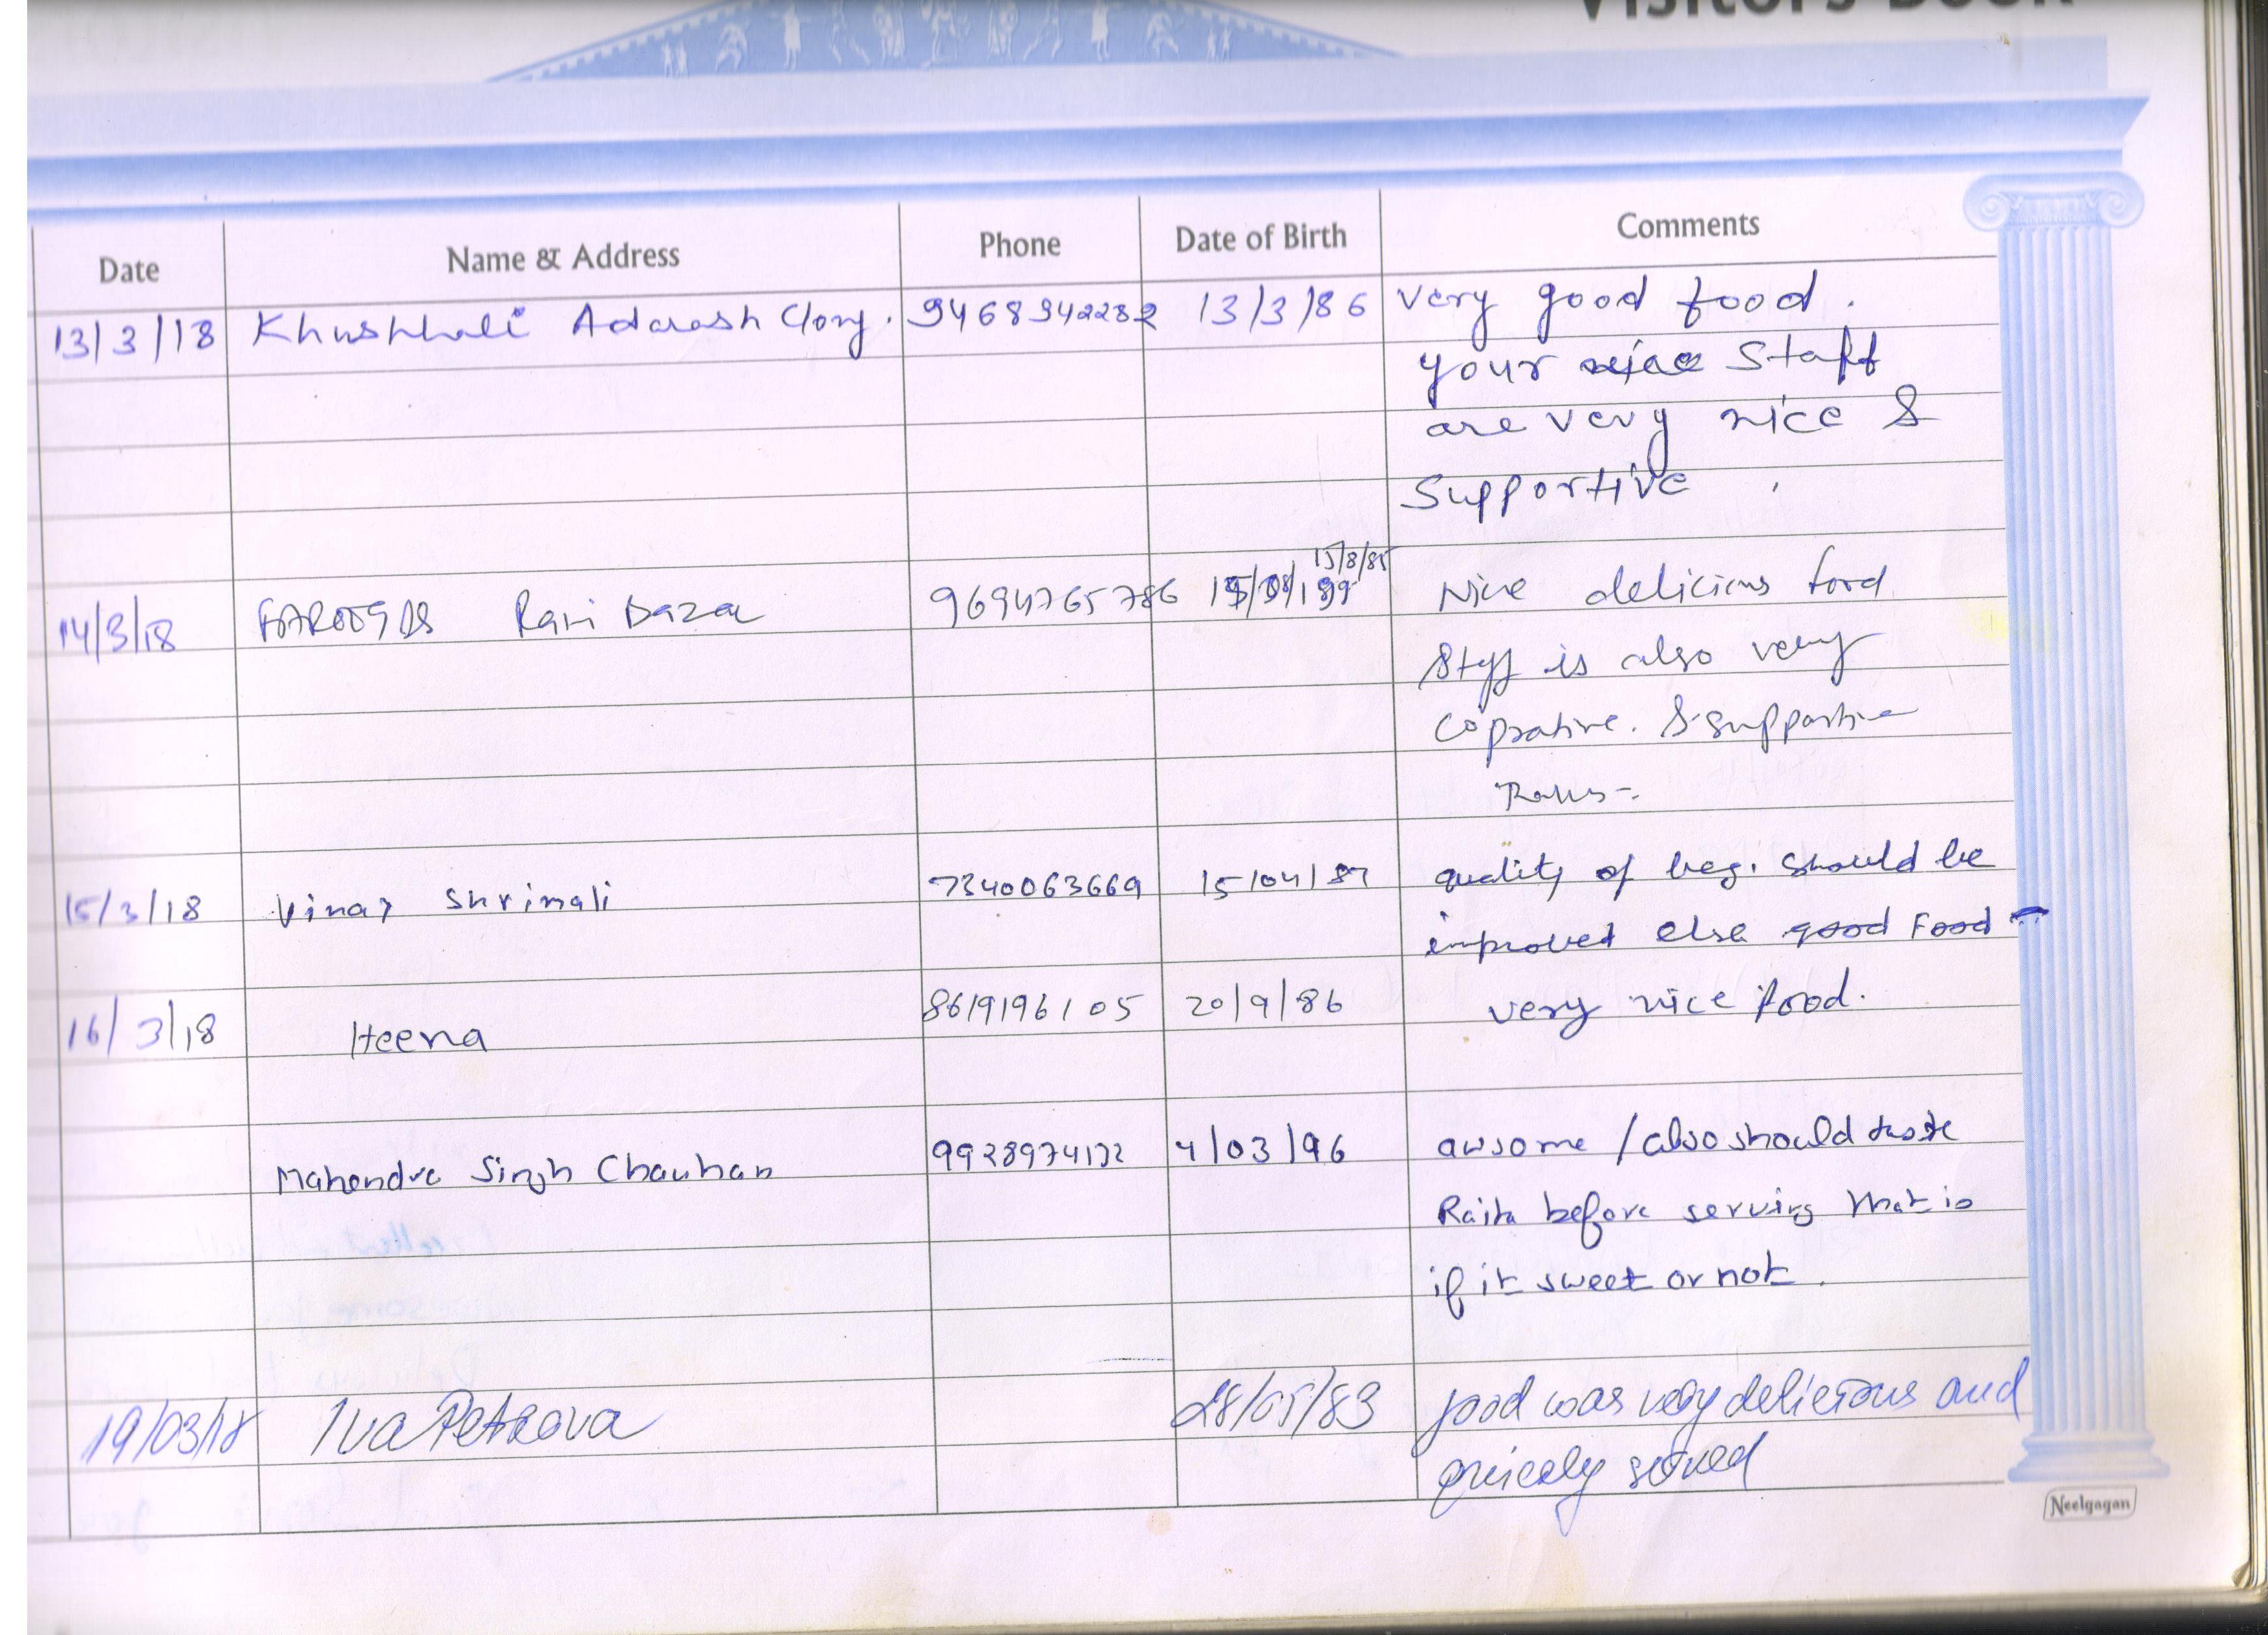 Visitor's Book
Date Name & Address Phone Date of Birth Comments
13/3/18 Khushhali Adarash Clony. 9468942282 13/3/86 very good food.
your staff
are very nice &
Supportive.
15/8/85
14/3/18 9694765786 Nice delicious food
Staff is also very
Coprative. & supportive
15/3/18 Vinay Shrimali 7340063669 15/04/87 quality of veg. should be
improved else good Food
16/3/18 Heena 8619196105 20/9/86 very nice food.
Mahendra Singh Chauhan 9928974132 4/03/96 awsome / also should taste
Raita before serving that is
if it sweet or not.
19/03/18 Iva Petrova 28/05/83 food was very delicious and
quickly served
Neelgagan